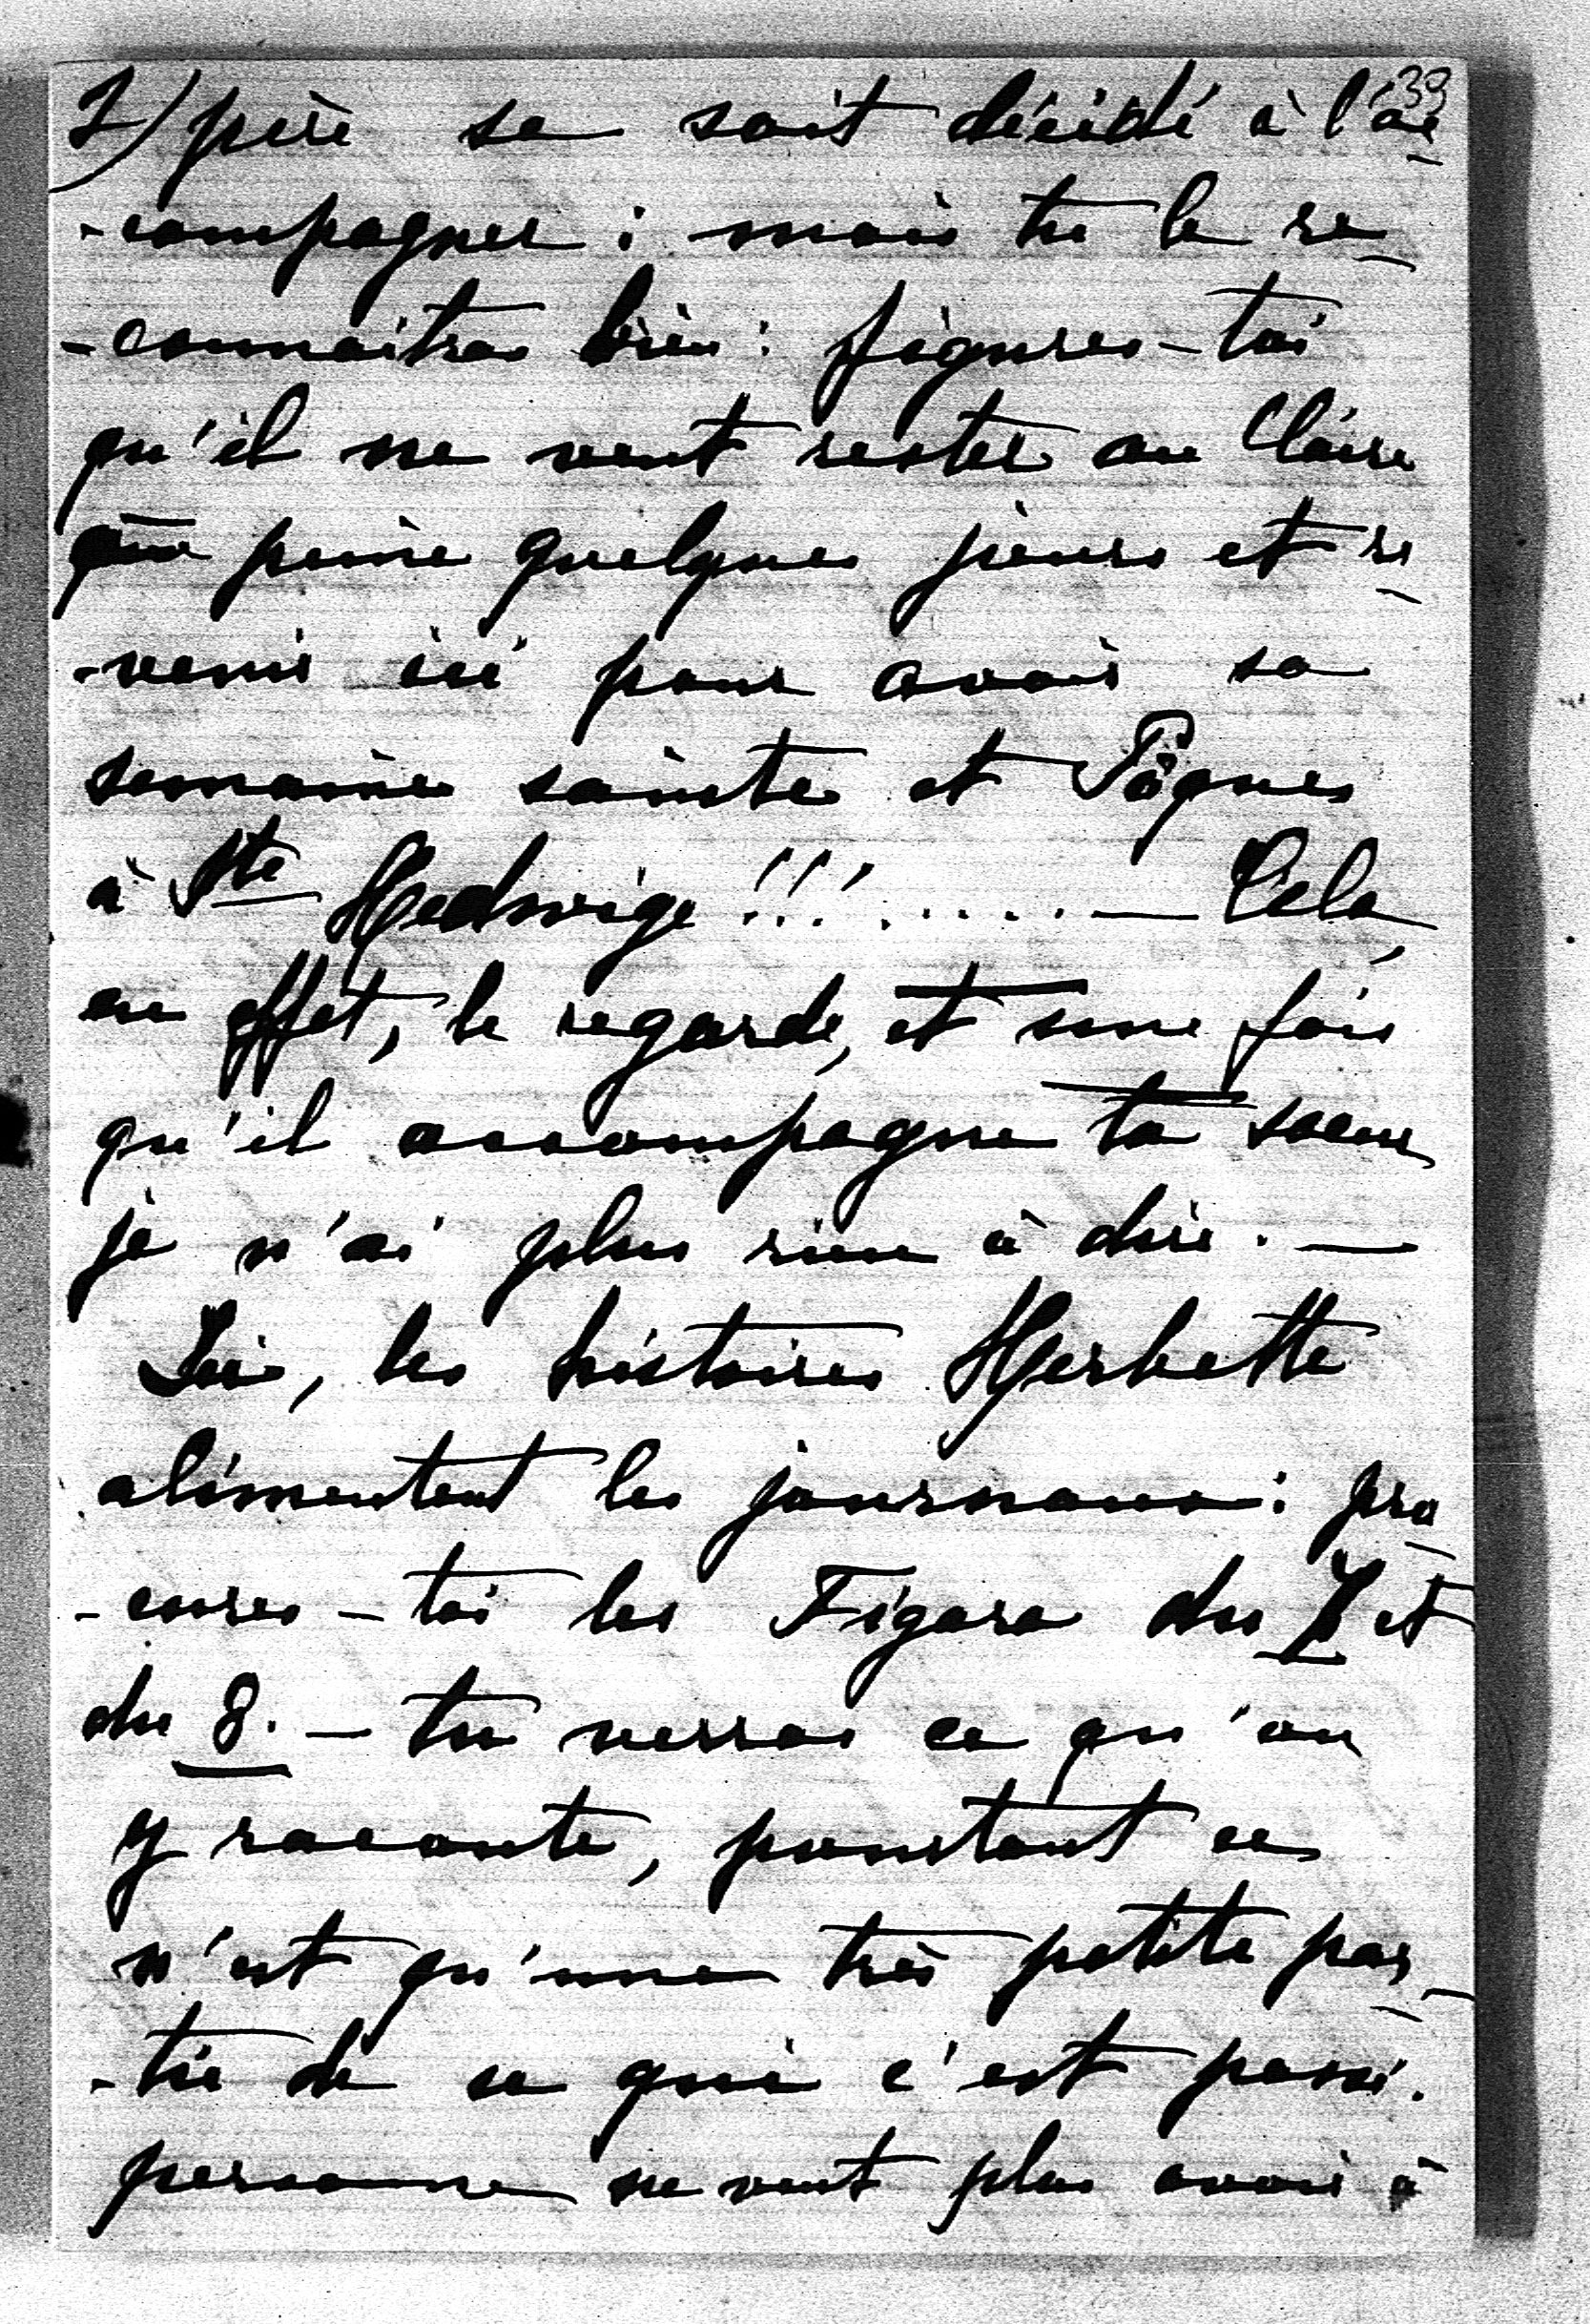 39
2/ père se soit décidé à l'ac
-compagner : mais tu le re
-connaitras bien : figures-toi
qu'il ne veut rester au Claire
peine quelques jours et re
-venir ici pour avoir sa
semaine sainte et Pâques
à Ste Hedwige !!! ...... — Cela,
en effet, le regarde, et une fois
qu'il accompagne ta soeur
je n'ai plus rien à dire. —
Ici, les histoires Herbette
alimentent les journaux : pro
-cures-toi les Figaro du 7 et
du 8. — tu verras ce qu'on
y raconte, pourtant ce
n'est qu'une très petite par
-tie de ce qui c'est passé.
personne ne veut plus avoir à